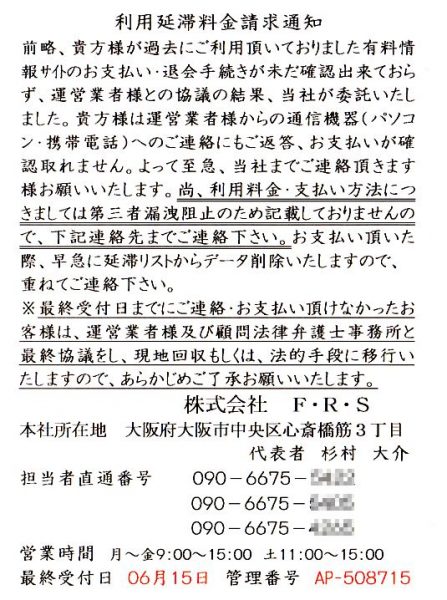 利用延滞料金請求通知
前略、貴方様が過去にご利用頂いておりました有料情
報サイトのお支払い・退会手続きが未だ確認出来ておら
ず、運営業者様との協議の結果、当社が委託いたし
ました。貴方様は運営業者様からの通信機器(パソコ
ン・携帯電話)へのご連絡にもご返答、お支払いが確
認取れません。よって至急、当社までご連絡頂きます
様お願いいたします。尚、利用料金・支払い方法につ
きましては第三者漏洩阻止のため記載しておりませんの
で、下記連絡先までご連絡下さい。お支払い頂いた
際、早急に延滞リストからデータ削除いたしますので、
重ねてご連絡下さい。
※最終受付日までにご連絡・お支払い頂けなかったお
客様は、運営業者様及び顧問法律弁護士事務所と
最終協議をし、現地回収もしくは、法的手段に移行い
たしますので、あらかじめご了承お願いいたします。
株式会社 F・R・S
本社所在地 大阪府大阪市中央区心斎橋筋3丁目
代表者 杉村 大介
担当者直通番号 090-6675-
090-6675-
090-6675-
営業時間 月~金9:00~15:00 土11:00~15:00
最終受付日 06月15日 管理番号 AP-508715